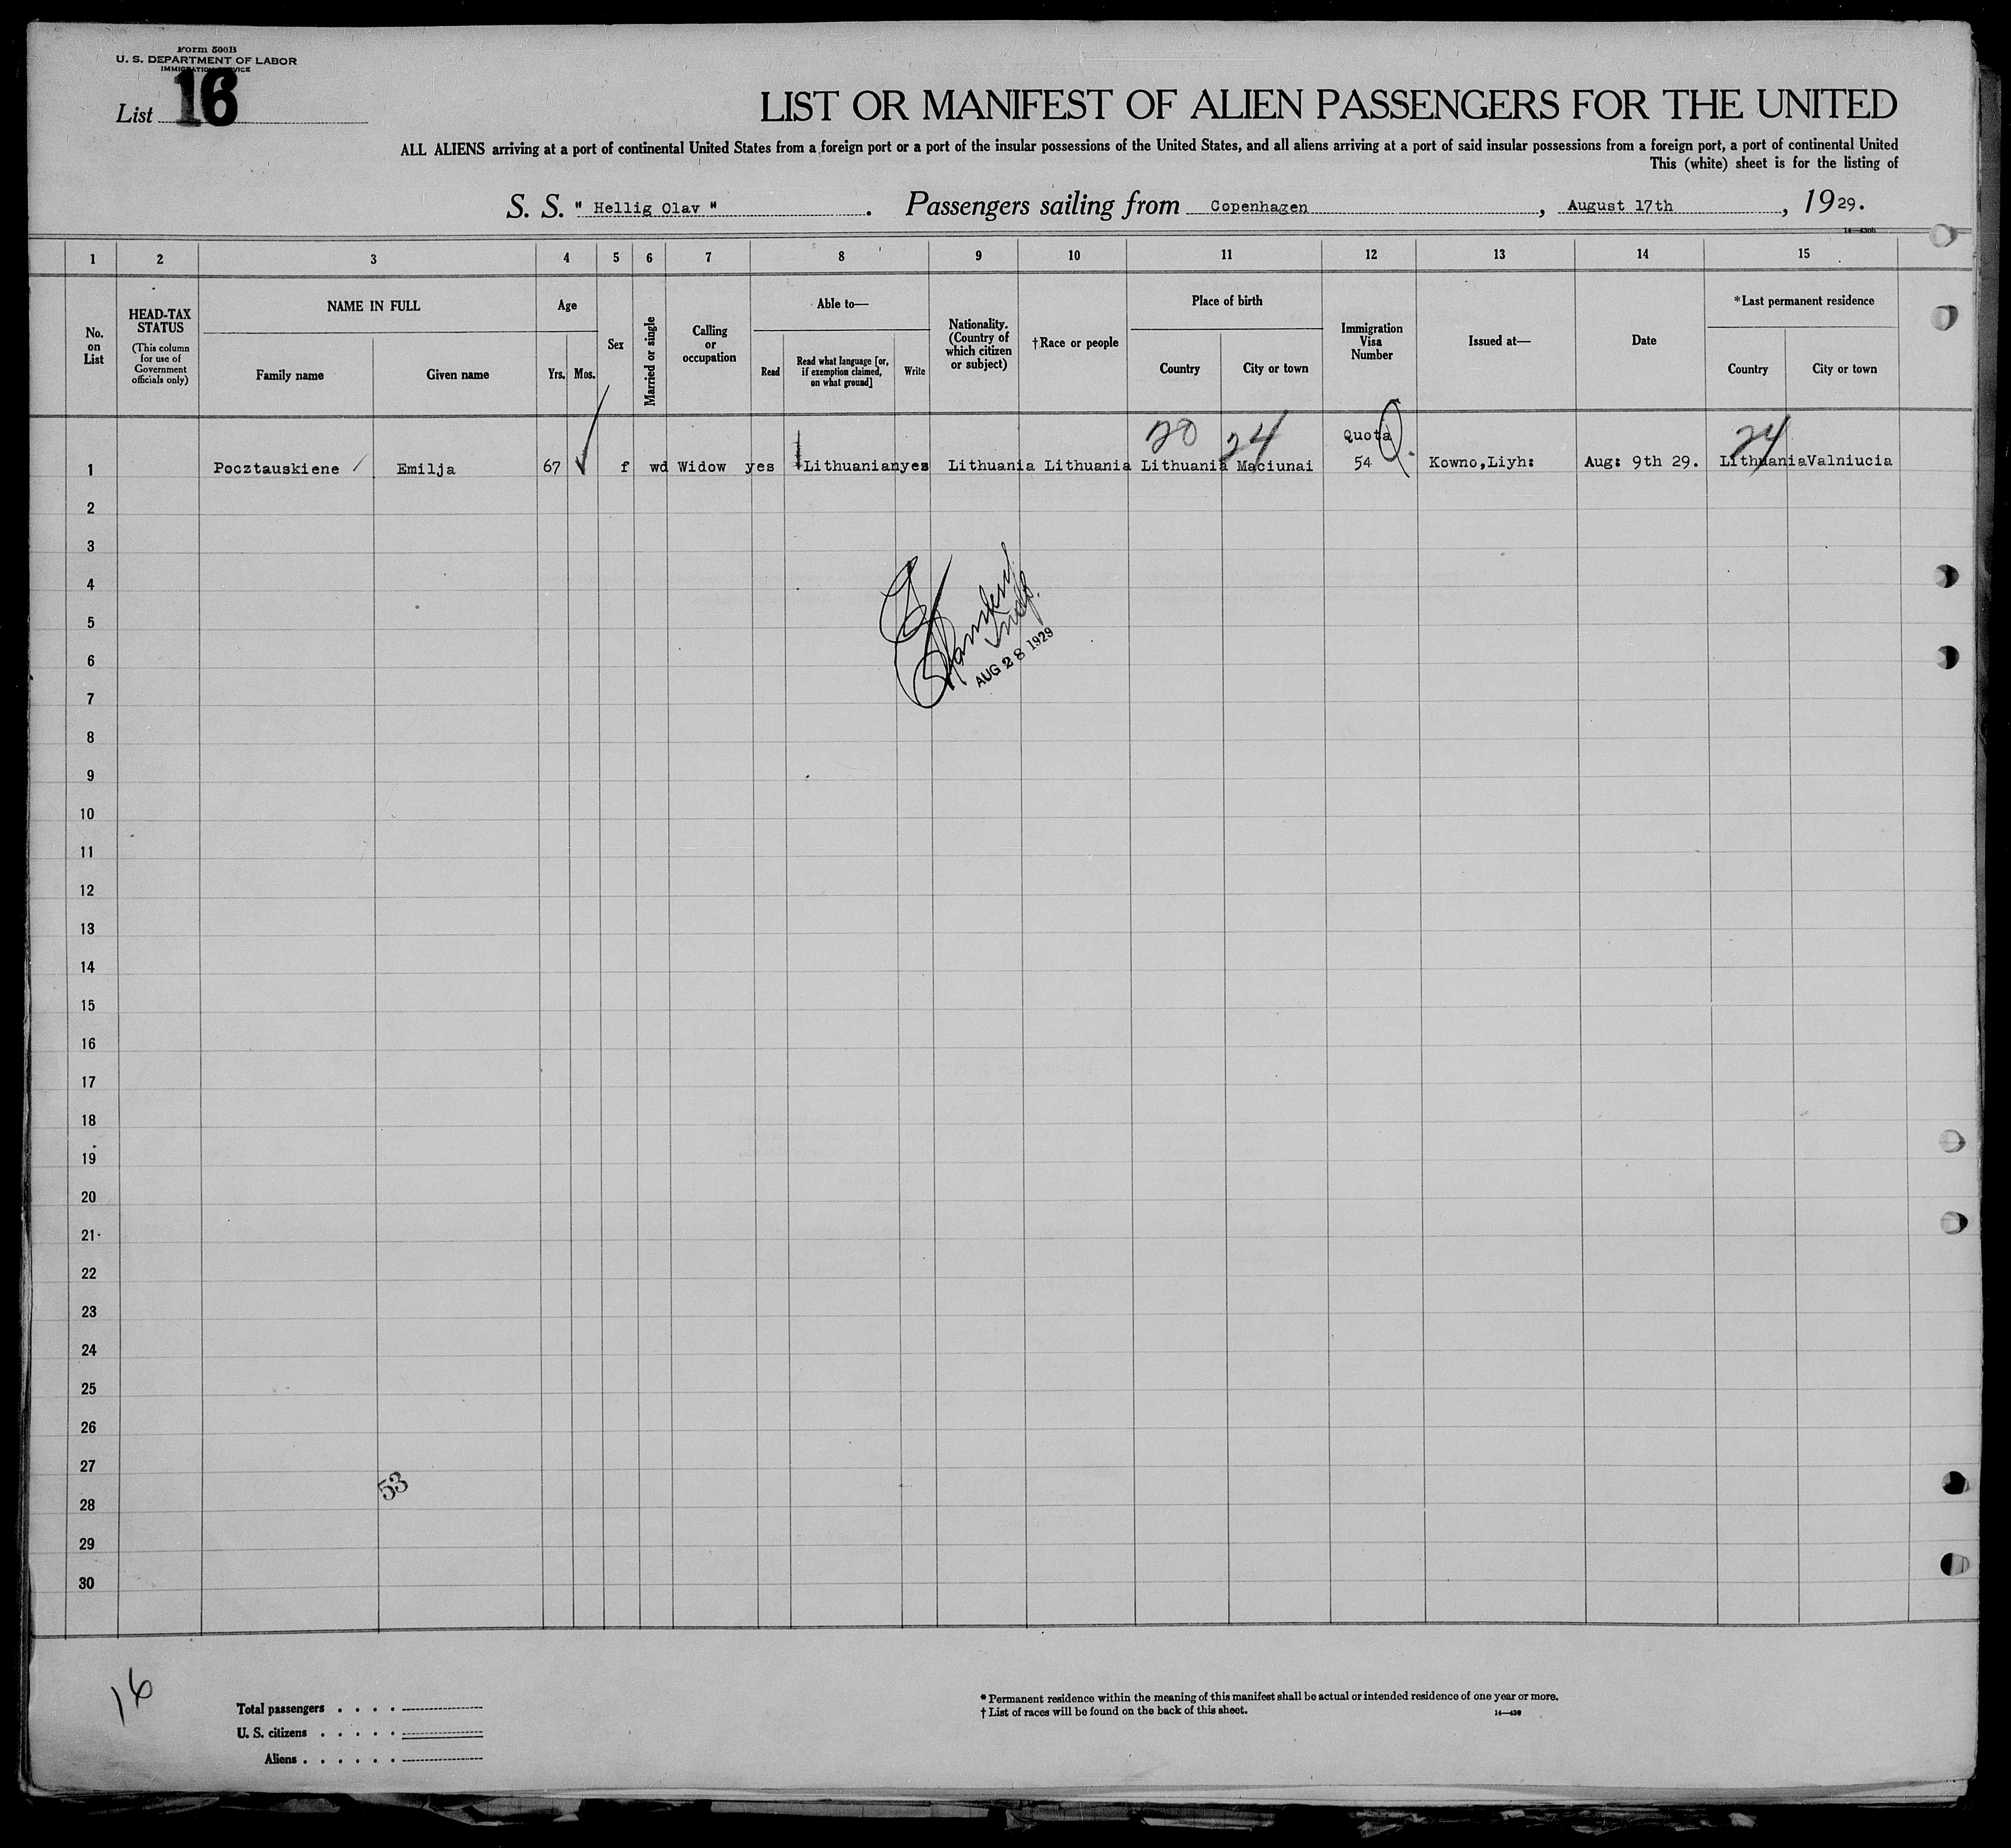 Form 500B
U. S. DEPARTMENT OF LABOR
IMMIGRATION SERVICE
List 16
LIST OR MANIFEST OF ALIEN PASSENGERS FOR THE UNITED
ALL ALIENS arriving at a port of continental United States from a foreign port or a port of the insular possessions of the United States, and all aliens arriving at a port of said insular possessions from a foreign port, a port of continental United
This (white) sheet is for the listing of
S. S. " Hellig Olav " . Passengers sailing from Copenhagen , August 17th , 1929.
14—430b
1 2 3 4 5 6 7 8 9 10 11 12 13 14 15
No. on List
HEAD-TAX STATUS
(This column for use of Government officials only)
NAME IN FULL
Family name
Given name
Age
Yrs. Mos.
Sex
Married or single
Calling or occupation
Able to—
Read
Read what language [or, if exemption claimed, on what ground]
Write
Nationality. (Country of which citizen or subject)
†Race or people
Place of birth
Country
City or town
Immigration Visa Number
Issued at—
Date
*Last permanent residence
Country
City or town
20 24 Quota Q. 24
1 Pocztauskiene Emilja 67 f wd Widow yes Lithuanian yes Lithuania Lithuania Lithuania Maciunai 54 Kowno,Liyh: Aug: 9th 29. Lithuania Valniucia
2
3
4
5
6
AUG 28 1929
7
8
9
10
11
12
13
14
15
16
17
18
19
20
21
22
23
24
25
26
27
53
28
29
30
16
Total passengers . . . .
U. S. citizens . . . . .
Aliens . . . . . .
* Permanent residence within the meaning of this manifest shall be actual or intended residence of one year or more.
† List of races will be found on the back of this sheet.
14—430